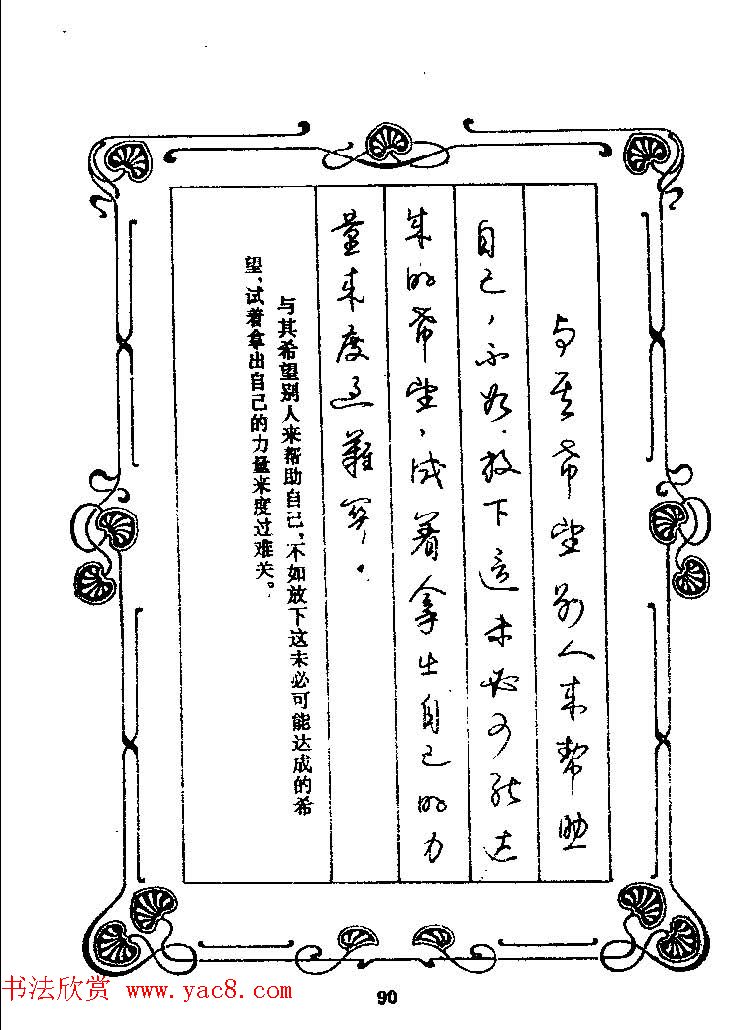 与其希望别人来帮助
自己，不如放下这未必可能达
成的希望，试着拿出自己的力
量来度过难关。
与其希望别人来帮助自己，不如放下这未必可能达成的希
望，试着拿出自己的力量来度过难关。
书法欣赏 www.yac8.com
90